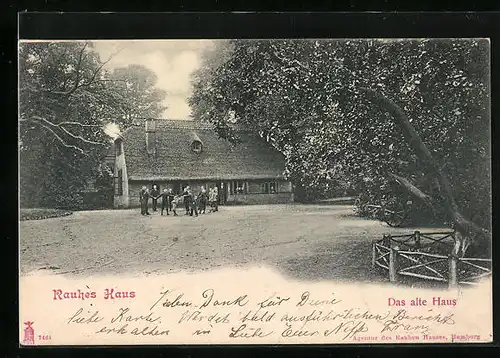 Rauhes Haus
Das alte Haus
Vielen Dank für Deine
liebe Karte. Werdet bald ausführlichen Bericht
erhalten in Liebe Euer Neffe Franz
1468
Agentur des Rauhen Hauses, Hamburg